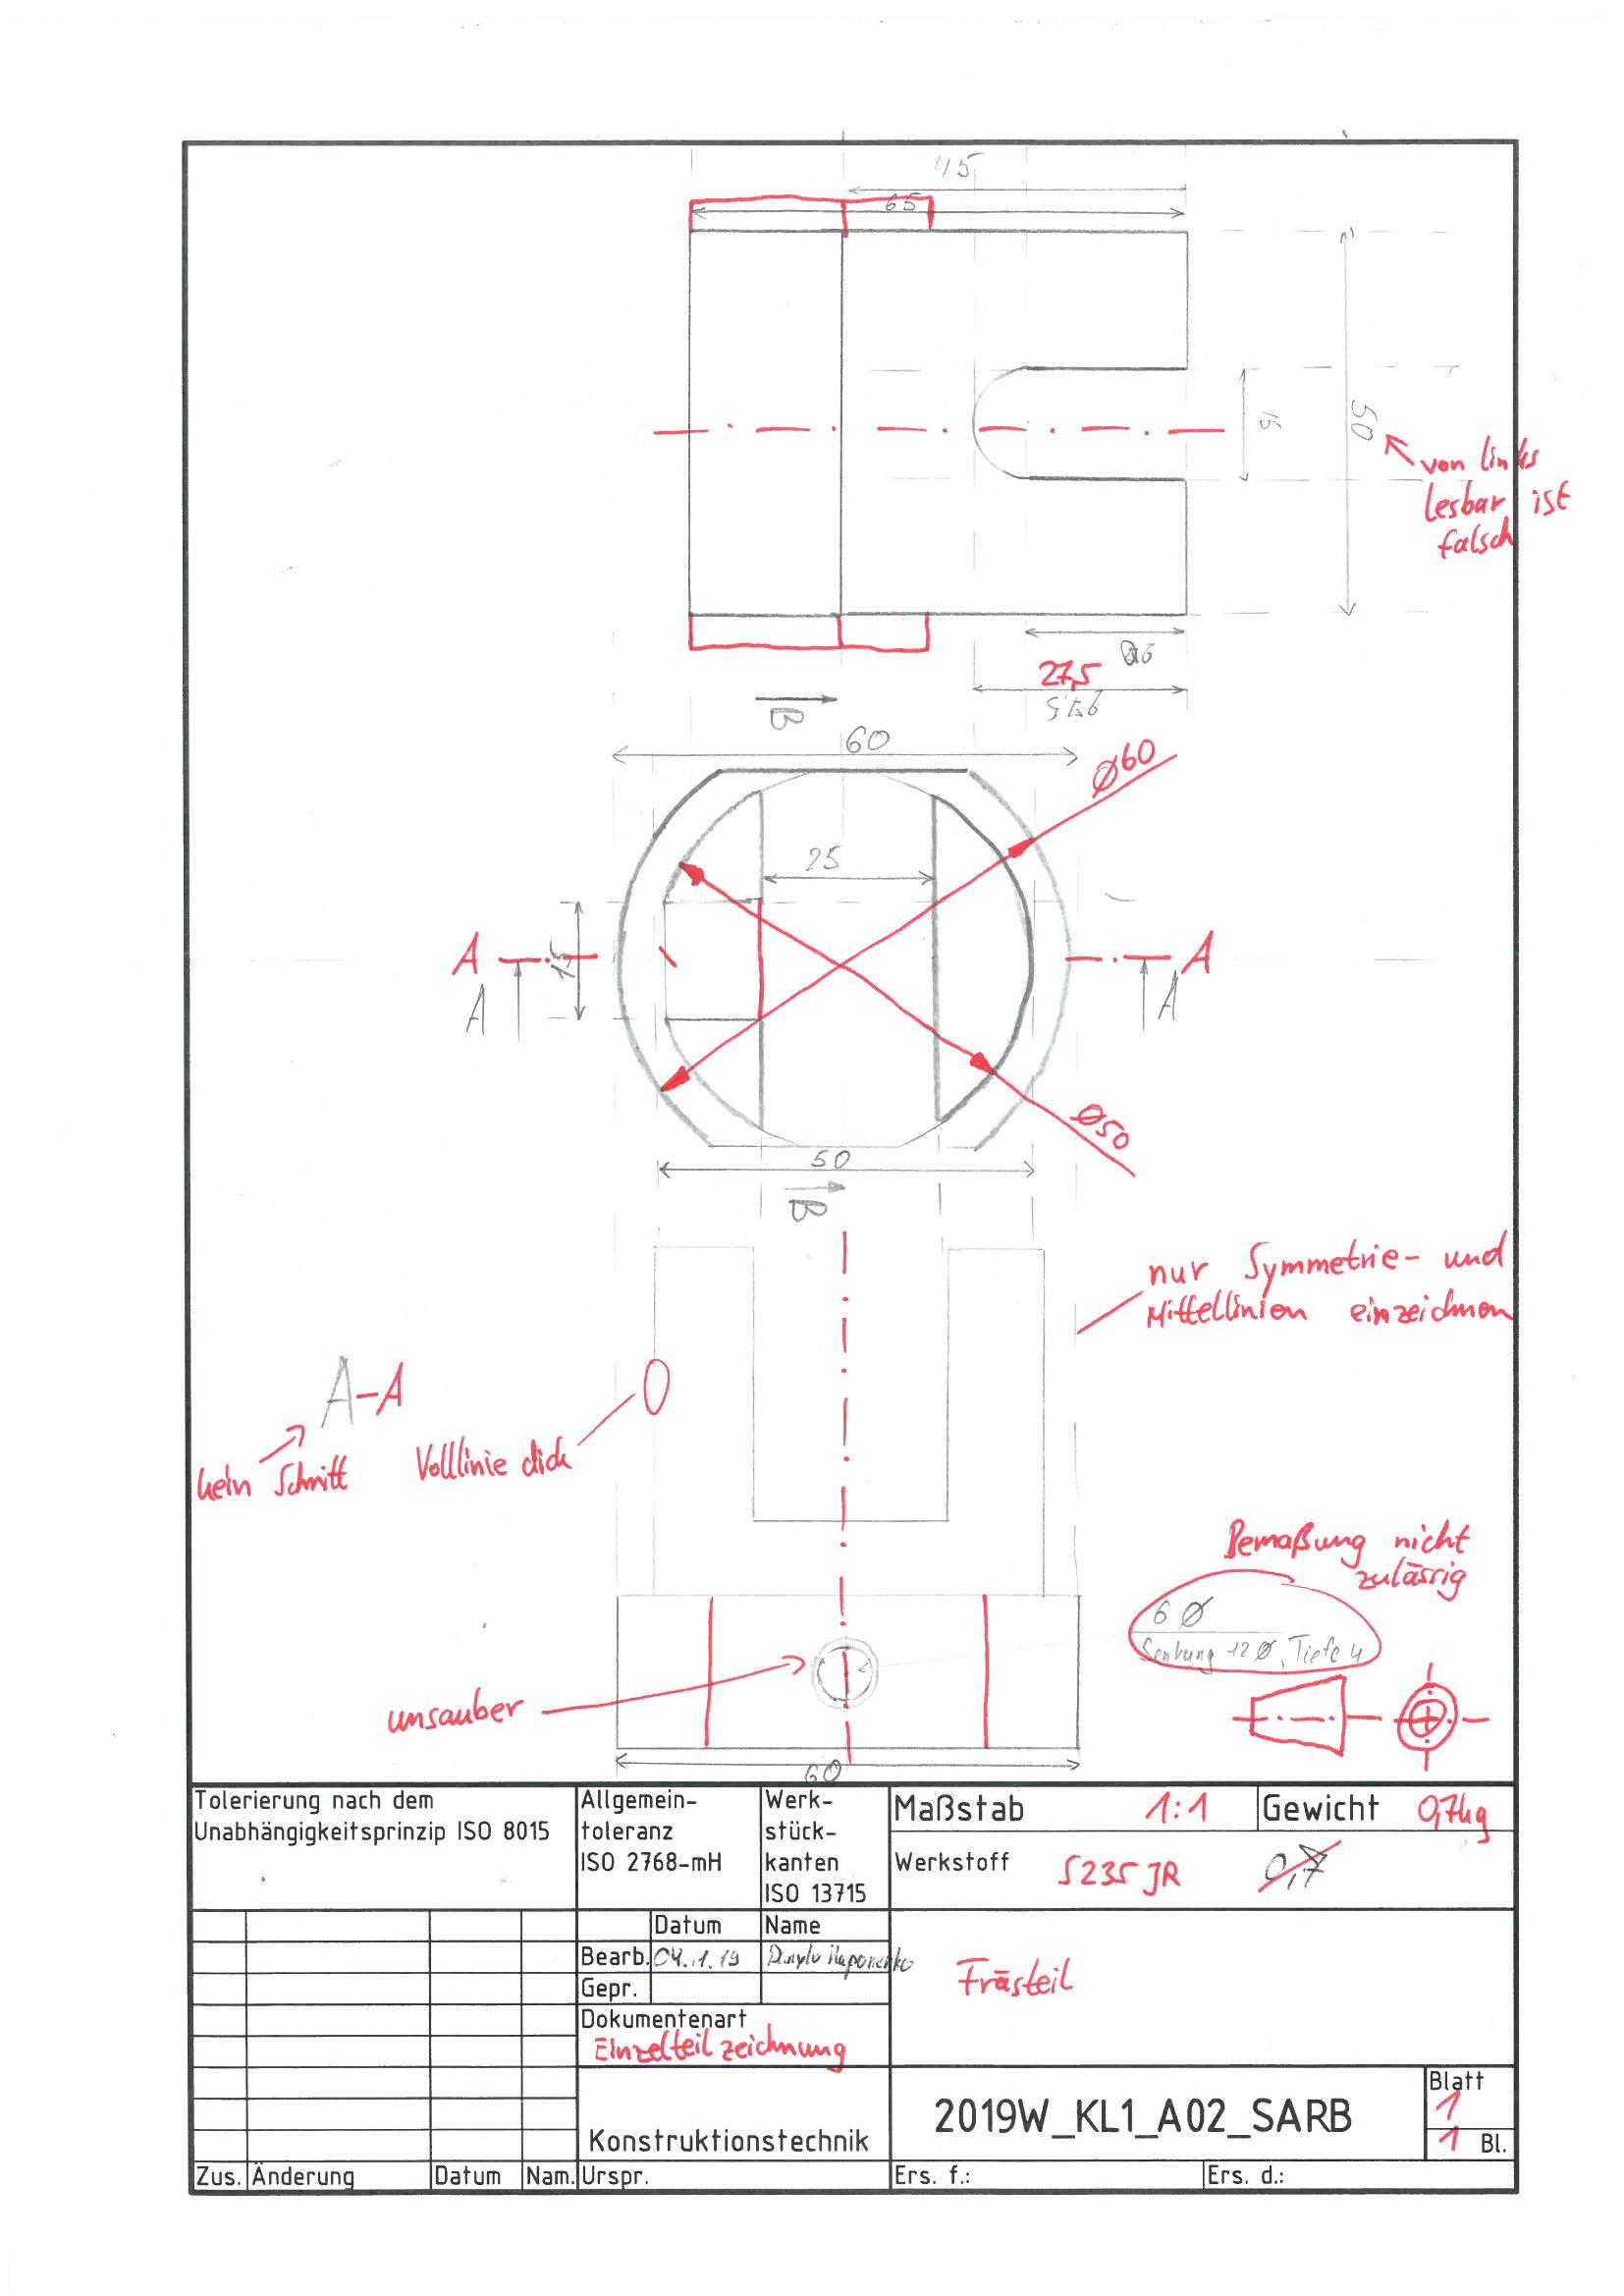 45
65
50
15
von links
lesbar ist
falsch
20
27,5
27,5
B
60
Ø60
25
15
A
A
A
A
Ø50
50
B
nur Symmetrie- und
Mittellinien einzeichnen
A-A
kein Schnitt
Volllinie dick
Bemaßung nicht
zulässig
6 Ø
Senkung 12 Ø, Tiefe 4
unsauber
60
Tolerierung nach dem
Unabhängigkeitsprinzip ISO 8015
Allgemein-
toleranz
ISO 2768-mH
Werk-
stück-
kanten
ISO 13715
Maßstab 1:1
Gewicht 0,7kg
Werkstoff S235 JR
0,7
Datum Name
Bearb. 04.1.19
Gepr.
Frästeil
Dokumentenart
Einzelteilzeichnung
Konstruktionstechnik
2019W_KL1_A02_SARB
Blatt
1
1 Bl.
Zus. Änderung Datum Nam. Urspr. Ers. f.: Ers. d.: